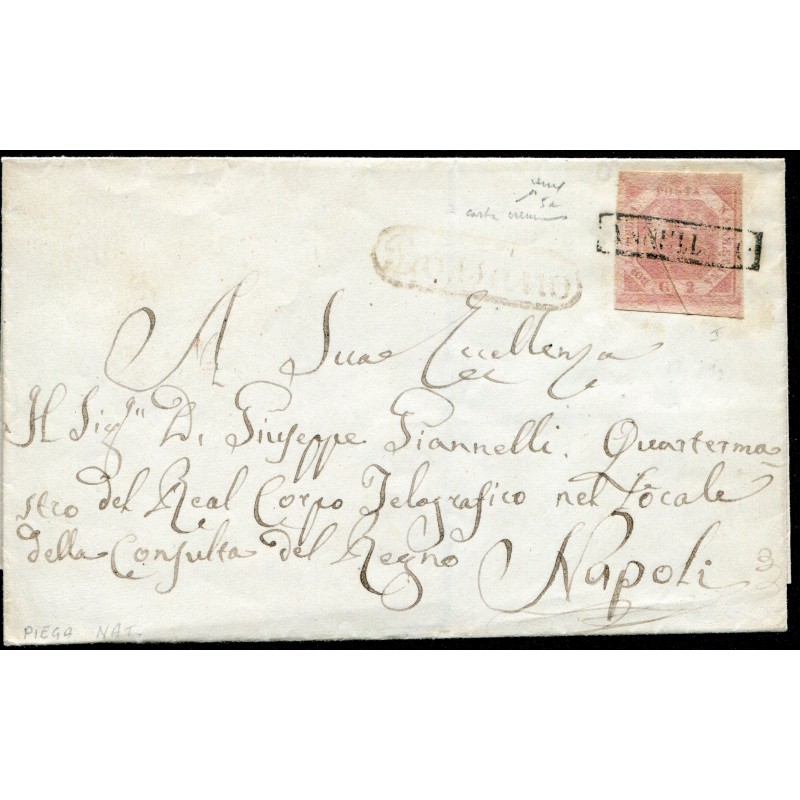 carta crema
n 5a
POSTA
ANNULLATO
G. 2
A Sua Eccellenza
Il Sigⁿ D. Giuseppe Giannelli. Quarterma-
stro del Real Corpo Telegrafico nel Locale
della Consulta del Regno Napoli
PIEGA NAT.